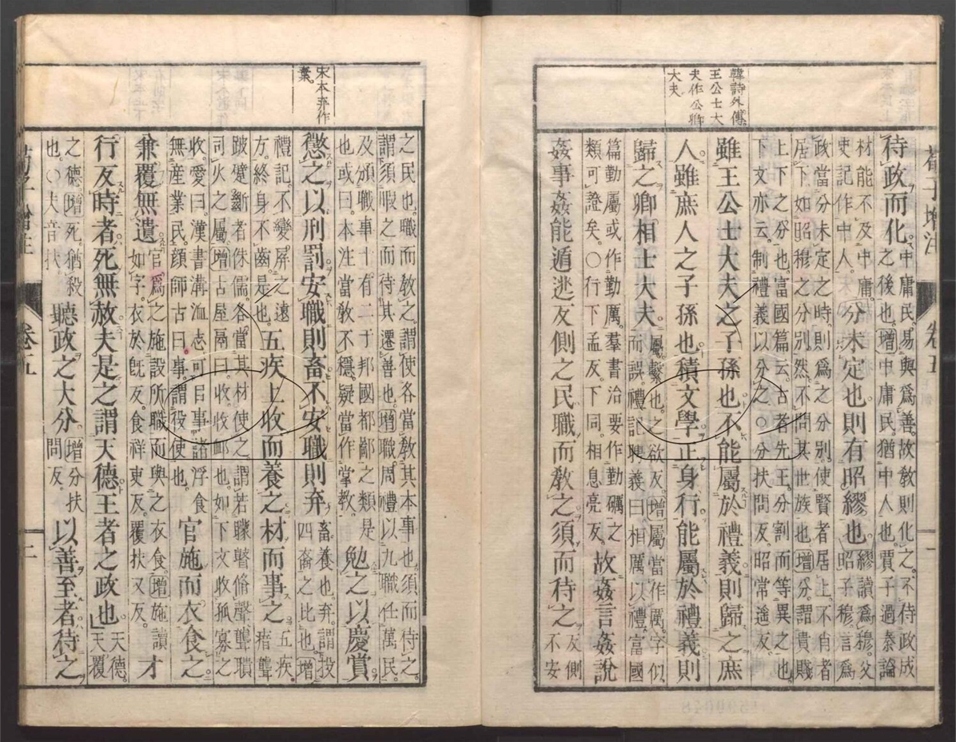 荀子增注
卷五
一
韓詩外傳
王公士大
夫作公卿
大夫
待政而化。中庸民易與爲善故教則化之。不待政成
之後也。增中庸民猶中人也賈子過秦論
材能不及中庸。
史記作中人。
分未定也則有昭繆也。繆讀爲穆。父
昭子穆。言爲
政當分未定之時。則爲之分別。使賢者居上。不肖者
居下。如昭穆之分別然。不問其世族也。增分謂貴賤
上下之分也。富國篇云。古者先王分割而等異之也
下文亦云制禮義以分之。○分扶問反。昭常遙反
雖王公士大夫之子孫也。不能屬於禮義則歸之庶
人。雖庶人之子孫也。積文學。正身行。能屬於禮義則
歸之卿相士大夫。屬繫也。之欲反。增屬當作厲。字似
而誤。禮記聘義曰相厲以禮。富國
篇勤屬或作勤厲。羣書治要作勤礪之
類可證矣。○行下孟反。下同。相息亮反
故姦言姦說
姦事姦能遁逃反側之民。職而敎之。須而待之。反側
不安
之民也。職而敎之。謂使各當敎其本事也。須而待之
謂須暇之而待其遷善也。增職周禮以九職任萬民。
及頒職事十有二于邦國都鄙之類是
也。或曰。本注當敎不穩。疑當作掌敎
勉之以慶賞
宋本弃作
棄。
懲之以刑罰。安職則畜。不安職則弃。畜養也。弃謂投
四裔之比也。增
禮記不變屏之遠
方。終身不齒。是
五疾上收而養之。材而事之。五疾。
瘖聾
跛躄斷者侏儒。各當其材使之。謂若矇瞽脩聲聾聵
司火之屬。增古屋鬲曰。收收卹也。如下文收孤寡之
收。愛曰。漢書溝洫志。可官事諸浮食
無産業民。顏師古曰。事謂役使也。
官施而衣食之。
兼覆無遺。官爲之施設所職而與之衣食。增施讀
如字。衣於旣反。食祥吏反。覆扶又反。
才
行反時者死無赦。夫是之謂天德。王者之政也。天德
天覆
之德。增死猶殺
也。○夫音扶
聽政之大分。增分扶
問反。
以善至者待之
荀子增注
卷五
二